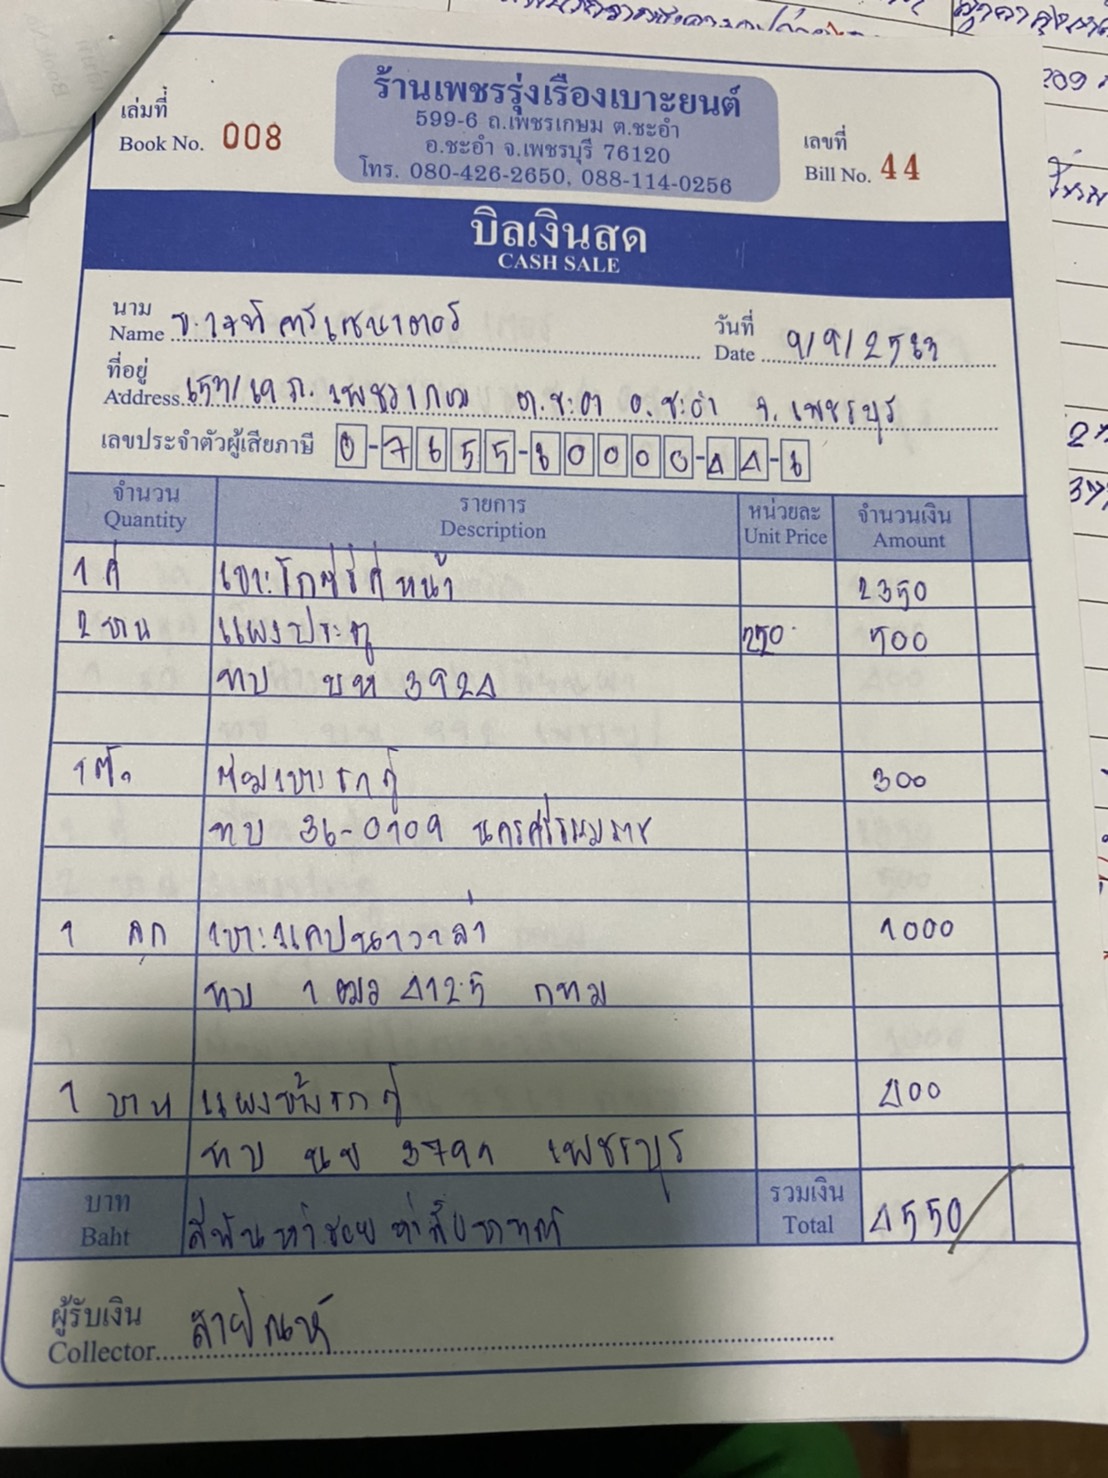 เล่มที่
Book No. 008
ร้านเพชรรุ่งเรืองเบาะยนต์
599-6 ถ.เพชรเกษม ต.ชะอำ
อ.ชะอำ จ.เพชรบุรี 76120
โทร. 080-426-2650, 088-114-0256
เลขที่
Bill No. 44
บิลเงินสด
CASH SALE
นาม
Name
วันที่
Date 9/9/2563
ที่อยู่
Address ถ. เพชรเกษม ต.ชะอำ อ.ชะอำ จ.เพชรบุรี
เลขประจำตัวผู้เสียภาษี 0-7655-60000-44-6
จำนวน รายการ หน่วยละ จำนวนเงิน
Quantity Description Unit Price Amount
1 คู่ หน้า 2350
2 บาน แผงประตู 250 500
ทบ บห 3924
1 ตัว ซ่อมเบาะรถตู้ 300
ทบ 36-0109 นครศรีธรรมราช
1 ลูก เบาะแคปนาวาร่า 1000
ทบ 1 ฒอ 4125 กทม
1 บาน แผงข้างรถตู้ 400
ทบ นข 3791 เพชรบุรี
บาท
Baht สี่พันห้าร้อยห้าสิบบาทถ้วน
รวมเงิน
Total 4550
ผู้รับเงิน
Collector สายัณห์